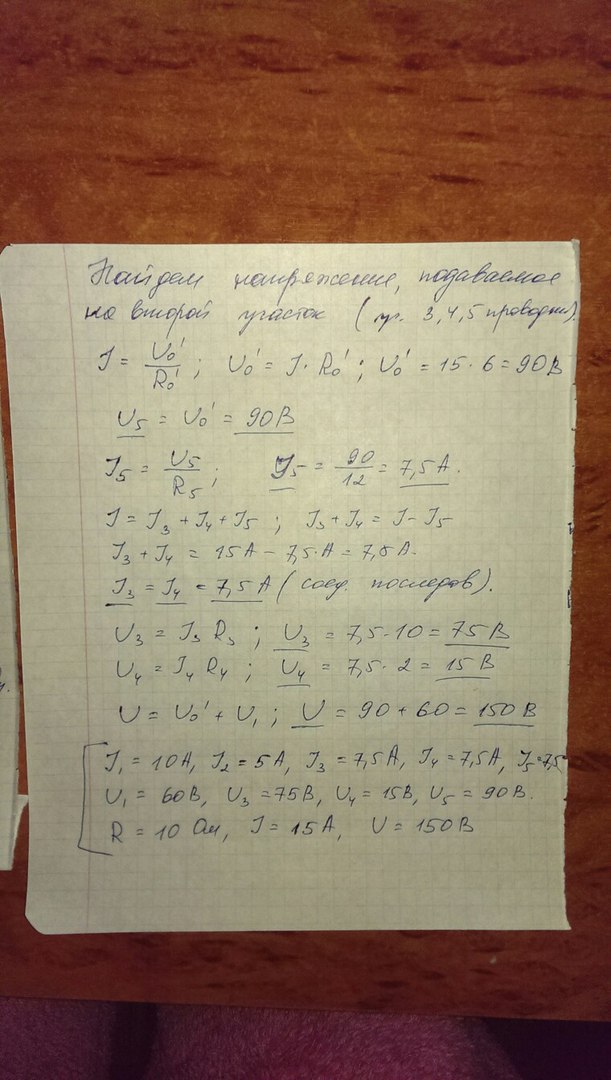 Найдем напряжение, подаваемое
на второй участок ( пр. 3,4,5 проводни).
J = U₀' / R₀' ; U₀' = J · R₀' ; U₀' = 15 · 6 = 90 В
U₅ = U₀' = 90 В
J₅ = U₅ / R₅ ; J₅ = 90 / 12 = 7,5 А.
J = J₃ + J₄ + J₅ ; J₃ + J₄ = J - J₅
J₃ + J₄ = 15 А - 7,5 А = 7,5 А.
J₃ = J₄ = 7,5 А ( соед. последов).
U₃ = J₃ R₃ ; U₃ = 7,5 · 10 = 75 В
U₄ = J₄ R₄ ; U₄ = 7,5 · 2 = 15 В
U = U₀' + U₁ ; U = 90 + 60 = 150 В
J₁ = 10 А, J₂ = 5 А, J₃ = 7,5 А, J₄ = 7,5 А, J₅ = 7,5
U₁ = 60 В, U₃ = 75 В, U₄ = 15 В, U₅ = 90 В.
R = 10 Ом, J = 15 А, U = 150 В